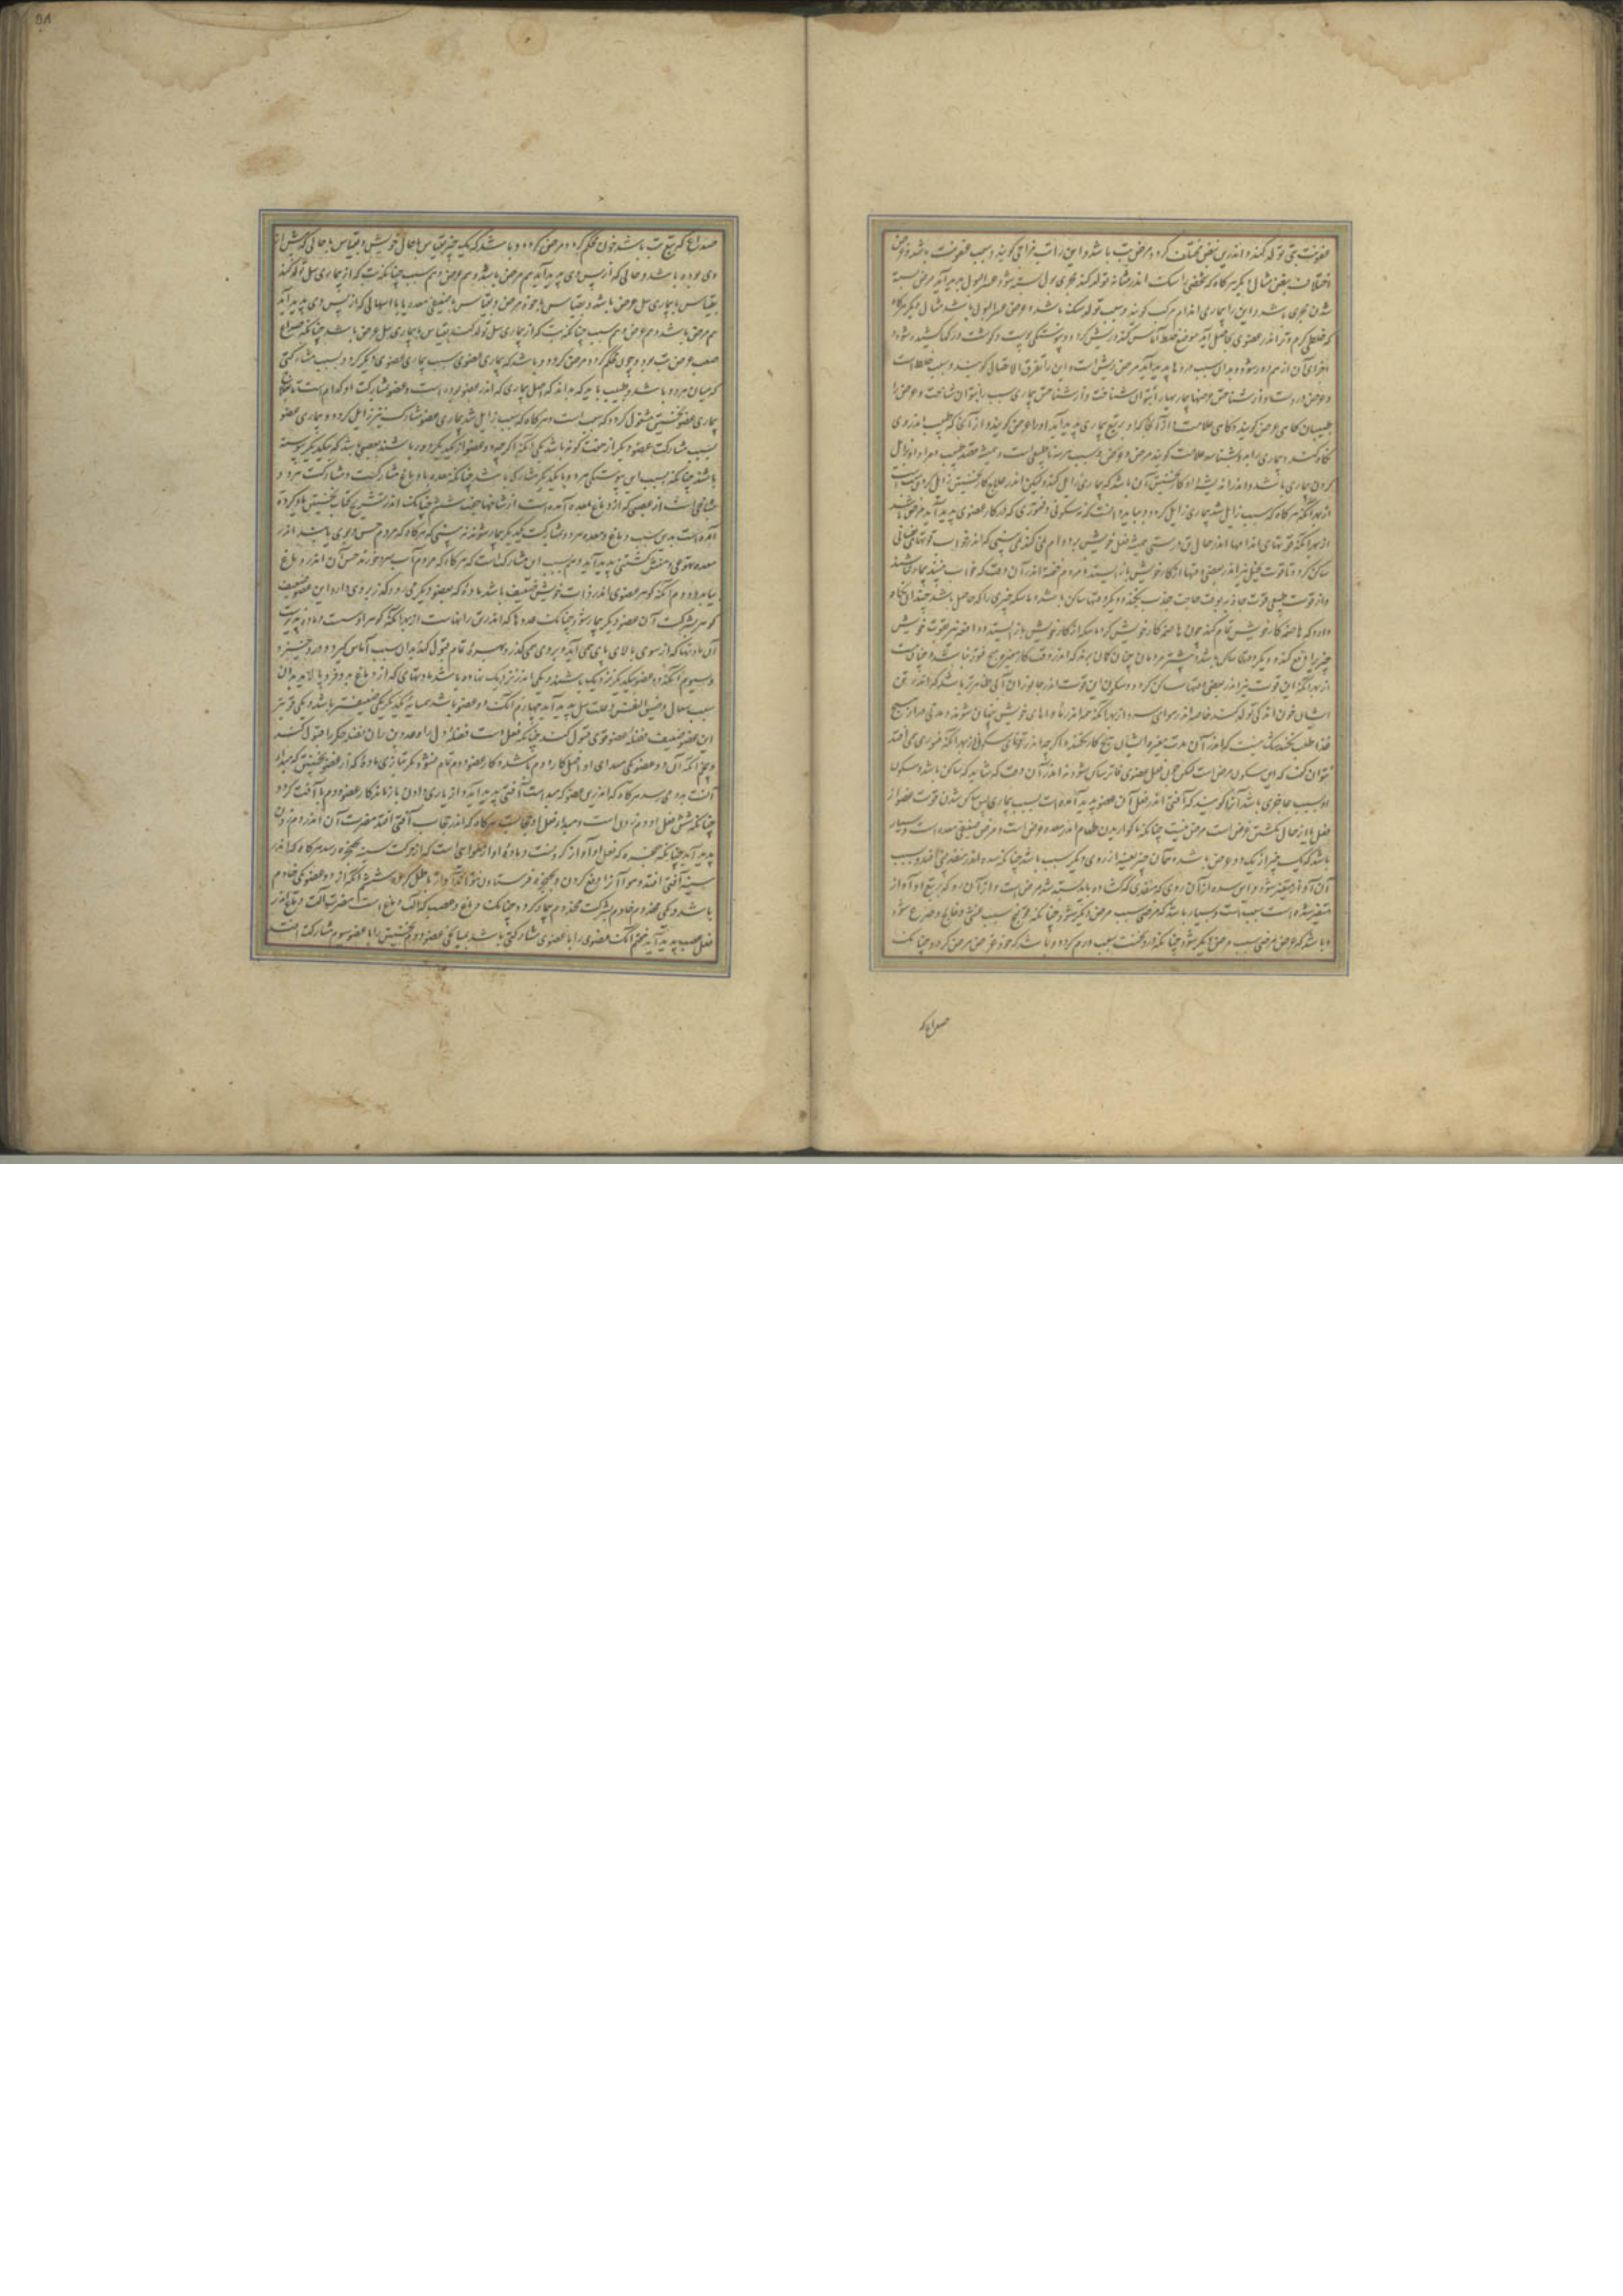 عفونت تبی تولد کند و اندرین نبض مختلف گردد مرض تب باشد و این را تب مزاجی گویند و سبب عفونت باشد و عرض
اختلاف نبض مثال دیگر هرگاه که شخصی را سنگ اندر مثانه تولد کند مجری بول بسته شود عسرالبول پدید آید مرض بسته
شدن مجری باشد و این را بیماری اندام مرکب گویند و سبب تولد سنگ باشد و عرض عسرالبول باشد مثال دیگر هرگاه
که خلطی گرم و تیز اندر عضوی حاصل آید موضع خلط آماس کند و ریش گردد و پیوستگی پوست و گوشت و رگها گشیده شود و
اجزای آن از هم دور شود و بدان سبب دردها پدید آید مرض ریش است و این را تفرق الاتصال گویند و سبب خلط است
و عرض درد است و از شناختن عرضها بیماریها را بتوان شناخت و از شناختن بیماری سبب را بتوان شناخت و عرض را
طبیبان گاهی عرض گویند و گاهی علامت از آنجا که او بر تبع بیماری پدید آید او را عرض گویند و از آنجا که طبیب اندر وی
نگاه کند و بیماری را بدو بشناسد علامت گویند و مرض و عرض و سبب هر سه ناطبیعی است و همیشه قصد طبیب و مراد او زایل
کردن بیماری باشد و اندر اندیشه او نخستین آن باشد که بیماری زایل کند ولیکن اندر علاج کار نخستین زایل کردن سبب است
از بهر آنکه هرگاه که سبب زایل شد بیماری زایل گردد و بباید دانست که هر سکونی و فتوری که اندر کار عضوی پدید آید مرض نباشد
از بهر آنکه قوتهای اندامها اندر حال تن درستی همیشه فعل خویش بر دوام نمی کند نبینی که اندر خواب قوتهای نفسانی
ساکن گردد تا قوت تخیل نیز اندر بعضی وقتها از کار خویش باز ایستد و مردم خفته اندر آن وقت که خواب نبیند بیمار نباشد
و از قوت طبیعی قوت جاذبه بوقت حاجت جذب بکند و دیگر وقتها ساکن باشد و ماسکه چیزی را که حاصل باشد چندان نگاه
دارد که هاضمه کار خویش تمام کند چون هاضمه کار خویش کرد ماسکه از کار خویش باز ایستد و دافعه هر بقوت خویش
چیز را دفع کند و دیگر وقتها ساکن باشد و بیشتر مردمان چنان گمان برند که اندر وقت کار مغیره هیچ فتور نباشد و چنان نیست
از بهر آنکه این قوت نیز اندر بعضی وقتها ساکن گردد و سکون این قوت اندر جانوران آبی ظاهرتر باشد که اندر تن
ایشان خون اندکی تولد کند خاصه اندر هوای سرد از بهر آنکه همه اندر مأواهای خویش پنهان شوند و مدتی دراز هیچ
غذا طلب نکنند و شک نیست که اندر آن مدت مغیره ایشان هیچ کار نکند و اگر چه اندر قوتهای سکونی از بهر آنکه فتوری می افتد
نتوان گفت که این سکون مرض است لیکن چون فعل عضوی فاتر و ساکن شود نه اندر آن وقت که شاید که ساکن باشد و سکون
او بسبب حاضری باشد آنرا گویند که آفتی اندر فعل آن عضو پدید آمده است بسبب بیماری پس ساکن شدن قوت عضو از
فعل یا از حال بگشتن عرض است مرض نیست چنانکه ناگواریدن طعام اندر معده عرض است و مرض ضعیفی معده است و بسیار
باشد که یک چیز از یک روی عرض باشد و همان چیز بعینه از روی دیگر سبب باشد چنانکه سده اندر منفذ بینی افتد و بسبب
آن آواز متغیر شود و این سده از آن روی که منفذی که گشاده باید بسته شد مرض است و از آن رو که بر تبع او آواز
متغیر شده است سبب است و بسیار باشد که مرضی سبب مرض دیگر شود چنانکه قولنج سبب غشی و فالج و صرع شود
و باشد که عرض مرضی سبب مرض دیگر شود چنانکه درد سخت سبب ورم گردد و باشد که خود عرض مرض گردد چنانک
صداع که
صداع که بر تبع تب باشد چون محکم گردد مرض گردد و باشد که یک چیز بقیاس با حال خویش و بقیاس با حالی که پیش از
وی بوده باشد و حالی که از پس وی پدید آید هم مرض باشد و هم عرض و هم سبب چنانکه تب که از بیماری سل تولد کند
بقیاس با بیماری سل عرض باشد و بقیاس با خود مرض و بقیاس با ضعیفی معده یا با اسهالی که از پس وی پدید آید
هم مرض باشد و هم عرض و هم سبب چنانکه تب که از بیماری سل تولد کند بقیاس با بیماری سل عرض باشد چنانکه صداع
صعب عرض تب بود و چون محکم گردد مرض گردد و باشد که بیماری عضوی سبب بیماری عضوی دیگر گردد و بسبب مشارکتی
که میان هر دو باشد و طبیب باید که بداند که اصل بیماری که اندر عضو بوده است و عضو مشارکت او کدام است تا بعلاج
بیماری عضو نخستین مشغول گردد که سبب است و هرگاه که سبب زایل شد بیماری عضو مشارک نیز زایل گردد و بیماری عضو
بسبب مشارکت عضو دیگر از هفت گونه باشد یکی آنکه اگر چه دو عضو از یکدیگر دور باشند بعصبی باشد که بیکدیگر پیوسته
باشند چنانکه بسبب این پیوستگی هر دو با یکدیگر مشارک باشد چنانکه معده با دماغ مشارکست و مشارکت هر دو
شاخهاست از عصبی که از دماغ بمعده آمده است از شاخهای جفت ششم چنانک اندر تشریح کتاب نخستین یاد کرده
آمده است بدین سبب دماغ و معده هر دو بمشارکت یکدیگر بیمار شوند نبینی که هرگاه که مردم حس و بوی یابند اندر
معده تهوعی و منش گشتنی پدید آید و هم بسبب این مشارکت است که هرگاه که مردم آب سرد خورند حس آن اندر دماغ
بیابد دوم آنکه گوهر عضوی اندر ذات خویش ضعیف باشد ماده که بعضو دیگر می رود گذر بر وی دارد این عضو ضعیف
گوهر بمشارکت آن عضو دیگر بیمار شود چنانک غددها که اندر بن رانهاست از بهر آنکه گوهر او سست و ماده پذیرست
آن مادتها که از سوی بالای پای می آید و بر وی می گذرد بهره تمام قبول کند بدان سبب آماس گیرد و درد خیزد
و سیوم آنکه دو عضو بیکدیگر نزدیک باشند و یکی اندر نزدیک نهاده باشد مادتهای که از دماغ بدو فرو پالاید بدان
سبب سعال و ضیق النفس و علت سل پدید آید چهارم آنک دو عضو باشد همسایه یکدیگر یکی ضعیفتر باشد و یکی قویتر
این عضو ضعیف فضله عضو قوی قبول کند چنانکه بغل است فضله دل را و غدد بن ران فضله جگر را قبول کند
و پنجم آنکه آن دو عضو یکی مبدای او اصل کار دوم باشد و کار عضو دوم تمام نشود مگر بیاری ماده که از عضو نخستین که مبداء
آنست بدو می رسد هرگاه که اندرین عضو که مبداست آفتی پدید آید و از یاری دادن باز ماند کار عضو دوم با آفت گردد
چنانکه شش فعل او دم زدن است و مبداء فعل او حجاب است هرگاه که اندر حجاب آفتی افتد مضرت آن اندر دم زدن
پدید آید چنانکه حنجره که فعل او آواز کردنست و ماده او از هوای است که از حرکت سینه بحنجره رسد هرگاه که اندر
سینه آفتی افتد و هوا را از دفع کردن و بحنجره فرستادن نتواند آواز باطل گردد ششم آنکه از دو عضو یکی خادم
باشد و یکی مخدوم خادم بمشارکت مخدوم بیمار گردد چنانک دماغ و عصب که آلت دماغ است مضرت آفت دماغ اندر
فعل عصب پدید آید هفتم آنک عضوی را با عضوی مشارکتی باشد بمیانجی عضو دوم نخستین را با عضو سیوم مشارکت افتد